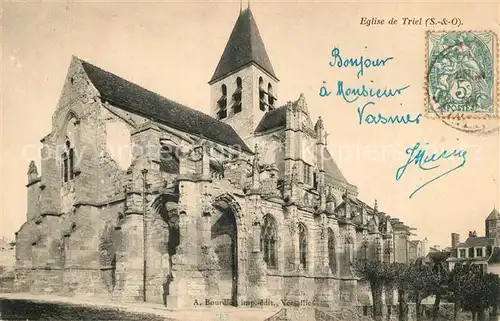 Eglise de Triel (S.-&-O).
Bonjour
à Monsieur
Vasnier
5
POSTES
A. Bourdier imp.-édit., Versailles